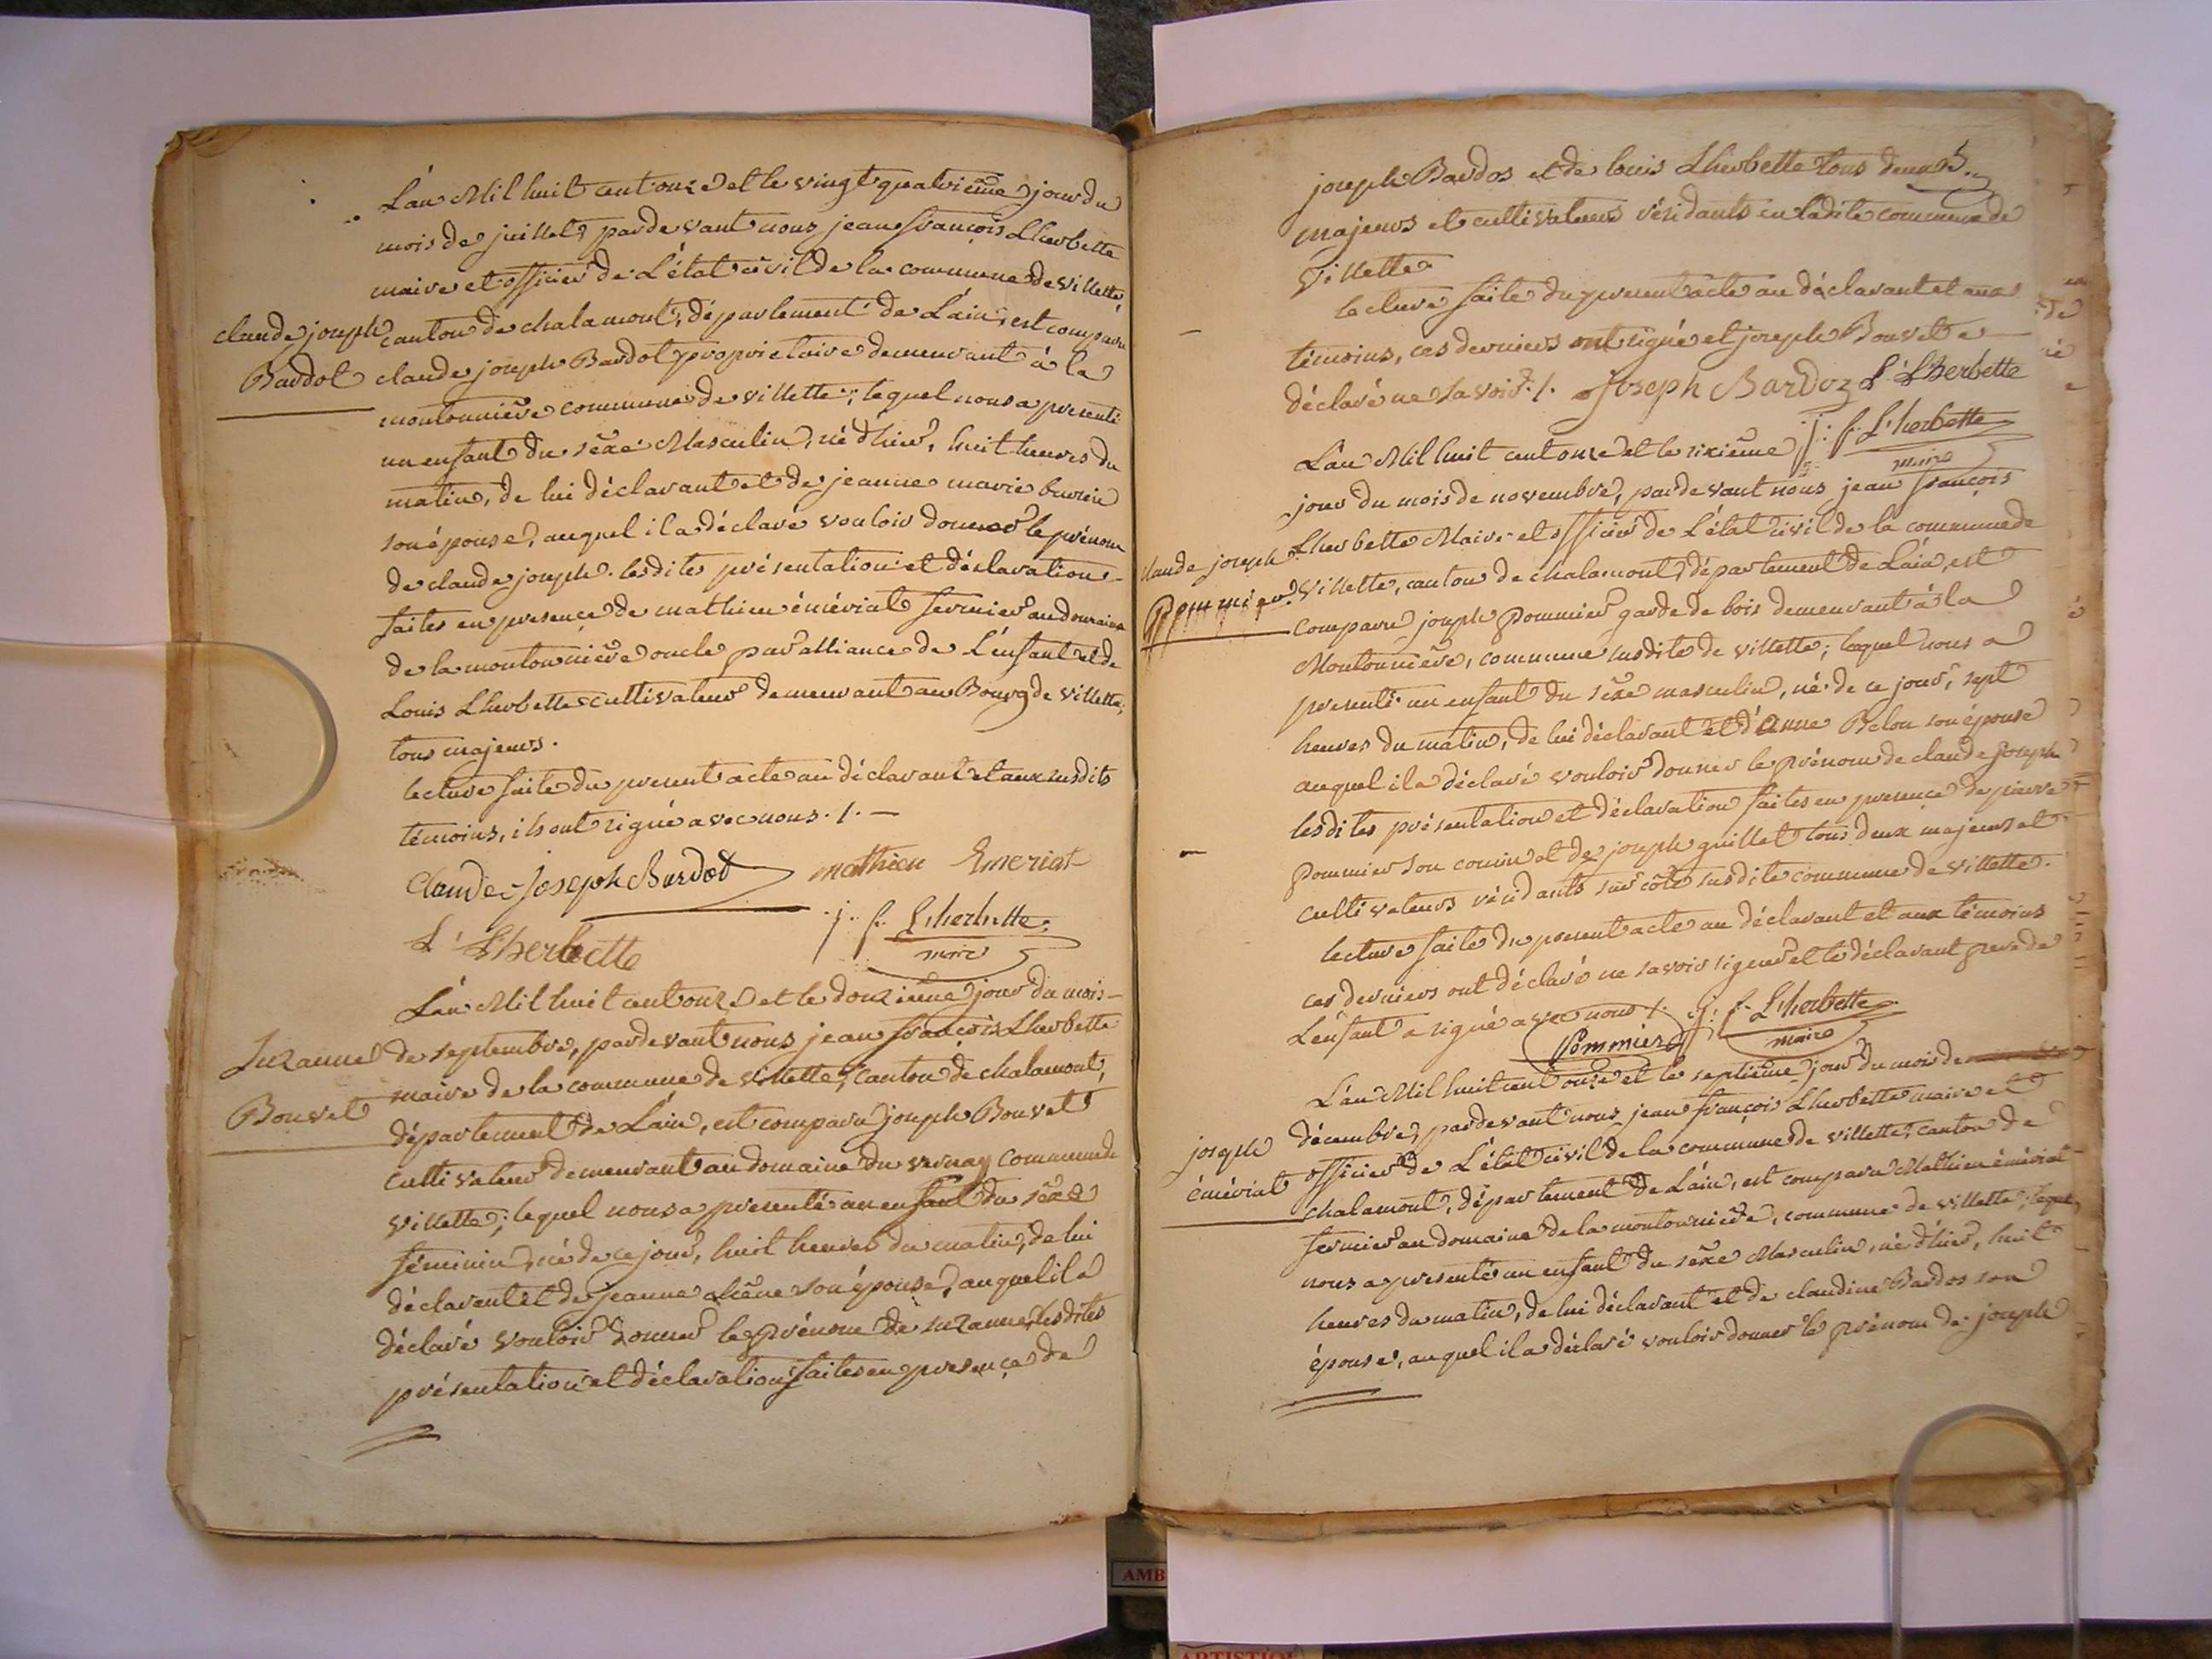 L'an Mil huit cent onze et le vingt quatrième jour du
mois de juillet, pardevant nous jean françois Lherbette
maire et officier de L'état civil de la commune de villette,
claude joseph
Bardot
canton de chalamont, département de L'ain, est comparu
claude joseph Bardot proprietaire demeurant à la
moutonnière commune de villette; lequel nous a presenté
un enfant du séxe Masculin, né d'hier, huit heures du
matin, de lui déclarant et de jeanne marie
son épouse, auquel il a déclaré vouloir donner le prénom
de claude joseph. lesdites présentation et déclaration
faites en presence de mathieu émériat fermier au domaine
de la moutonnière oncle par alliance de L'enfant et de
Louis Lherbette cultivateur demeurant au Bourg de villette,
tous majeurs.
lecture faite du present acte au déclarant et aux susdits
témoins, ils ont signé avec nous ./. —
Claude-Joseph Bardot mathieu Emeriat
L. Lherbette j. f. Lherbette
maire
L'an Mil huit cent onze et le douzième jour du mois
Suzanne
Bouvet
de septembre, pardevant nous jean françois Lherbette
maire de la commune de villette, canton de chalamont,
département de L'ain, est comparu joseph Bouvet
cultivateur demeurant au domaine du vernay commune de
villette; lequel nous a presenté un enfant du séxe
féminin, né de ce jour, huit heures du matin, de lui
déclarant et de jeanne son épouse, auquel il a
déclaré vouloir donner le prénom de suzanne, lesdites
présentation et déclaration faites en presence de
joseph Bardos et de louis Lherbette tous deux
majeurs et cultivateurs résidants en ladite commune de
villette
lecture faite du present acte au déclarant et aux
témoins, ces derniers ont signé et joseph Bouvet a
déclaré ne savoir ./. Joseph Bardoz L. Lherbette
j. f. Lherbette
maire
L'an Mil huit cent onze et le sixième
jour du mois de novembre, pardevant nous jean françois
claude joseph
Pommier
Lherbette Maire et officier de L'état civil de la commune de
villette, canton de chalamont, département de L'ain, est
comparu joseph Pommier garde de bois demeurant à la
Moutonnière, commune susdite de villette; lequel nous a
presenté un enfant du séxe masculin, né de ce jour, sept
heures du matin, de lui déclarant et d'Anne Belon son épouse
auquel il a déclaré vouloir donner le prénom de claude joseph
lesdites présentation et déclaration faites en presence de pierre
Pommier son cousin et de joseph guillet tous deux majeurs et
cultivateurs résidants sur côte susdite commune de villette.
lecture faite du present acte au déclarant et aux témoins
ces derniers ont déclaré ne savoir signer et le déclarant pere de
L'enfant a signé avec nous ./. j. f. Lherbette
Pommier maire
L'an Mil huit cent onze et le septième jour du mois de
joseph
émériat
décembre, pardevant nous jean françois Lherbette maire et
officier de L'état civil de la commune de villette, canton de
chalamont, département de L'ain, est comparu Mathieu émériat
fermier au domaine de la moutonnière, commune de villette; lequel
nous a presenté un enfant du séxe Masculin, né d'hier, huit
heures du matin, de lui déclarant et de claudine Bardos son
épouse, auquel il a déclaré vouloir donner le prénom de joseph
AMB
ARTISTIQU